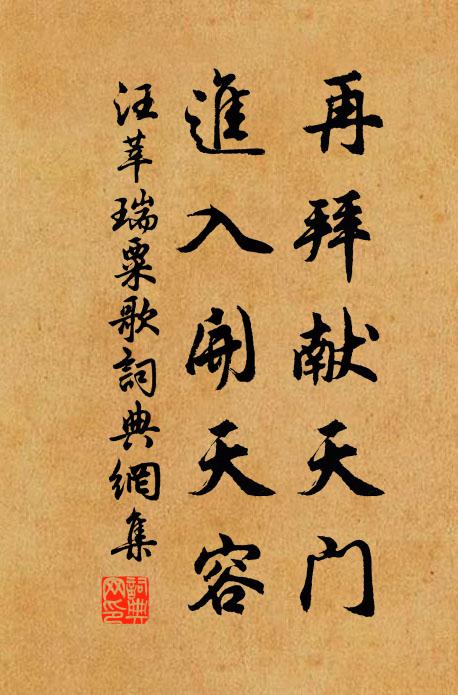 再拜献天门
進入開天容
汪莘瑞粟歌詞典網集
詞典网印